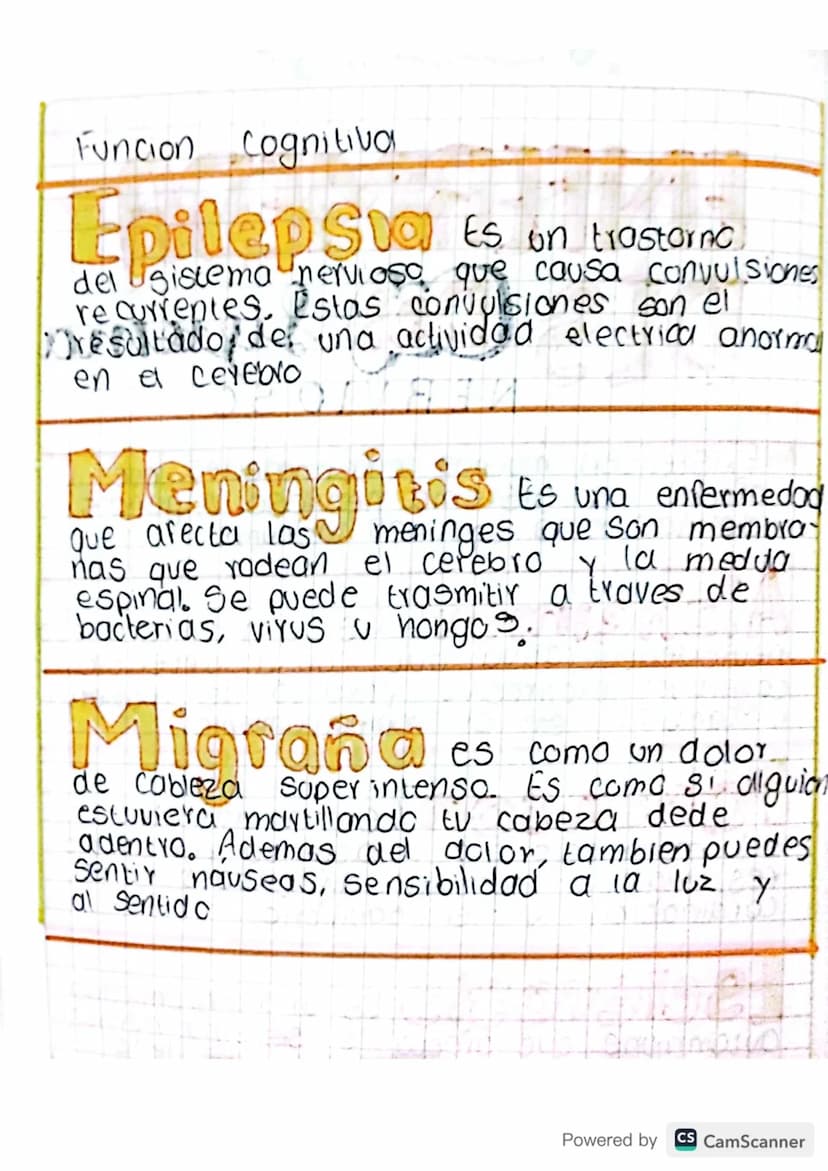 Funcion Cognitiva
Epilepsia Es un trastorno
del sistema nervioso que causa convulsiones
recurrentes. Estas convulsiones son el
resultado de una actividad electrica anormal
en el cerebro
Meningitis Es una enfermedad
que afecta las meninges que son membra-
nas que rodean el cerebro y la medula
espinal. Se puede trasmitir a traves de
bacterias, virus u hongos.
Migraña es como un dolor
de cabeza super intenso. Es como si alguien
estuviera martillando tu cabeza dede
adentro. Ademas del dolor, tambien puedes
sentir nauseas, sensibilidad a la luz y
al sentido
Powered by CS CamScanner